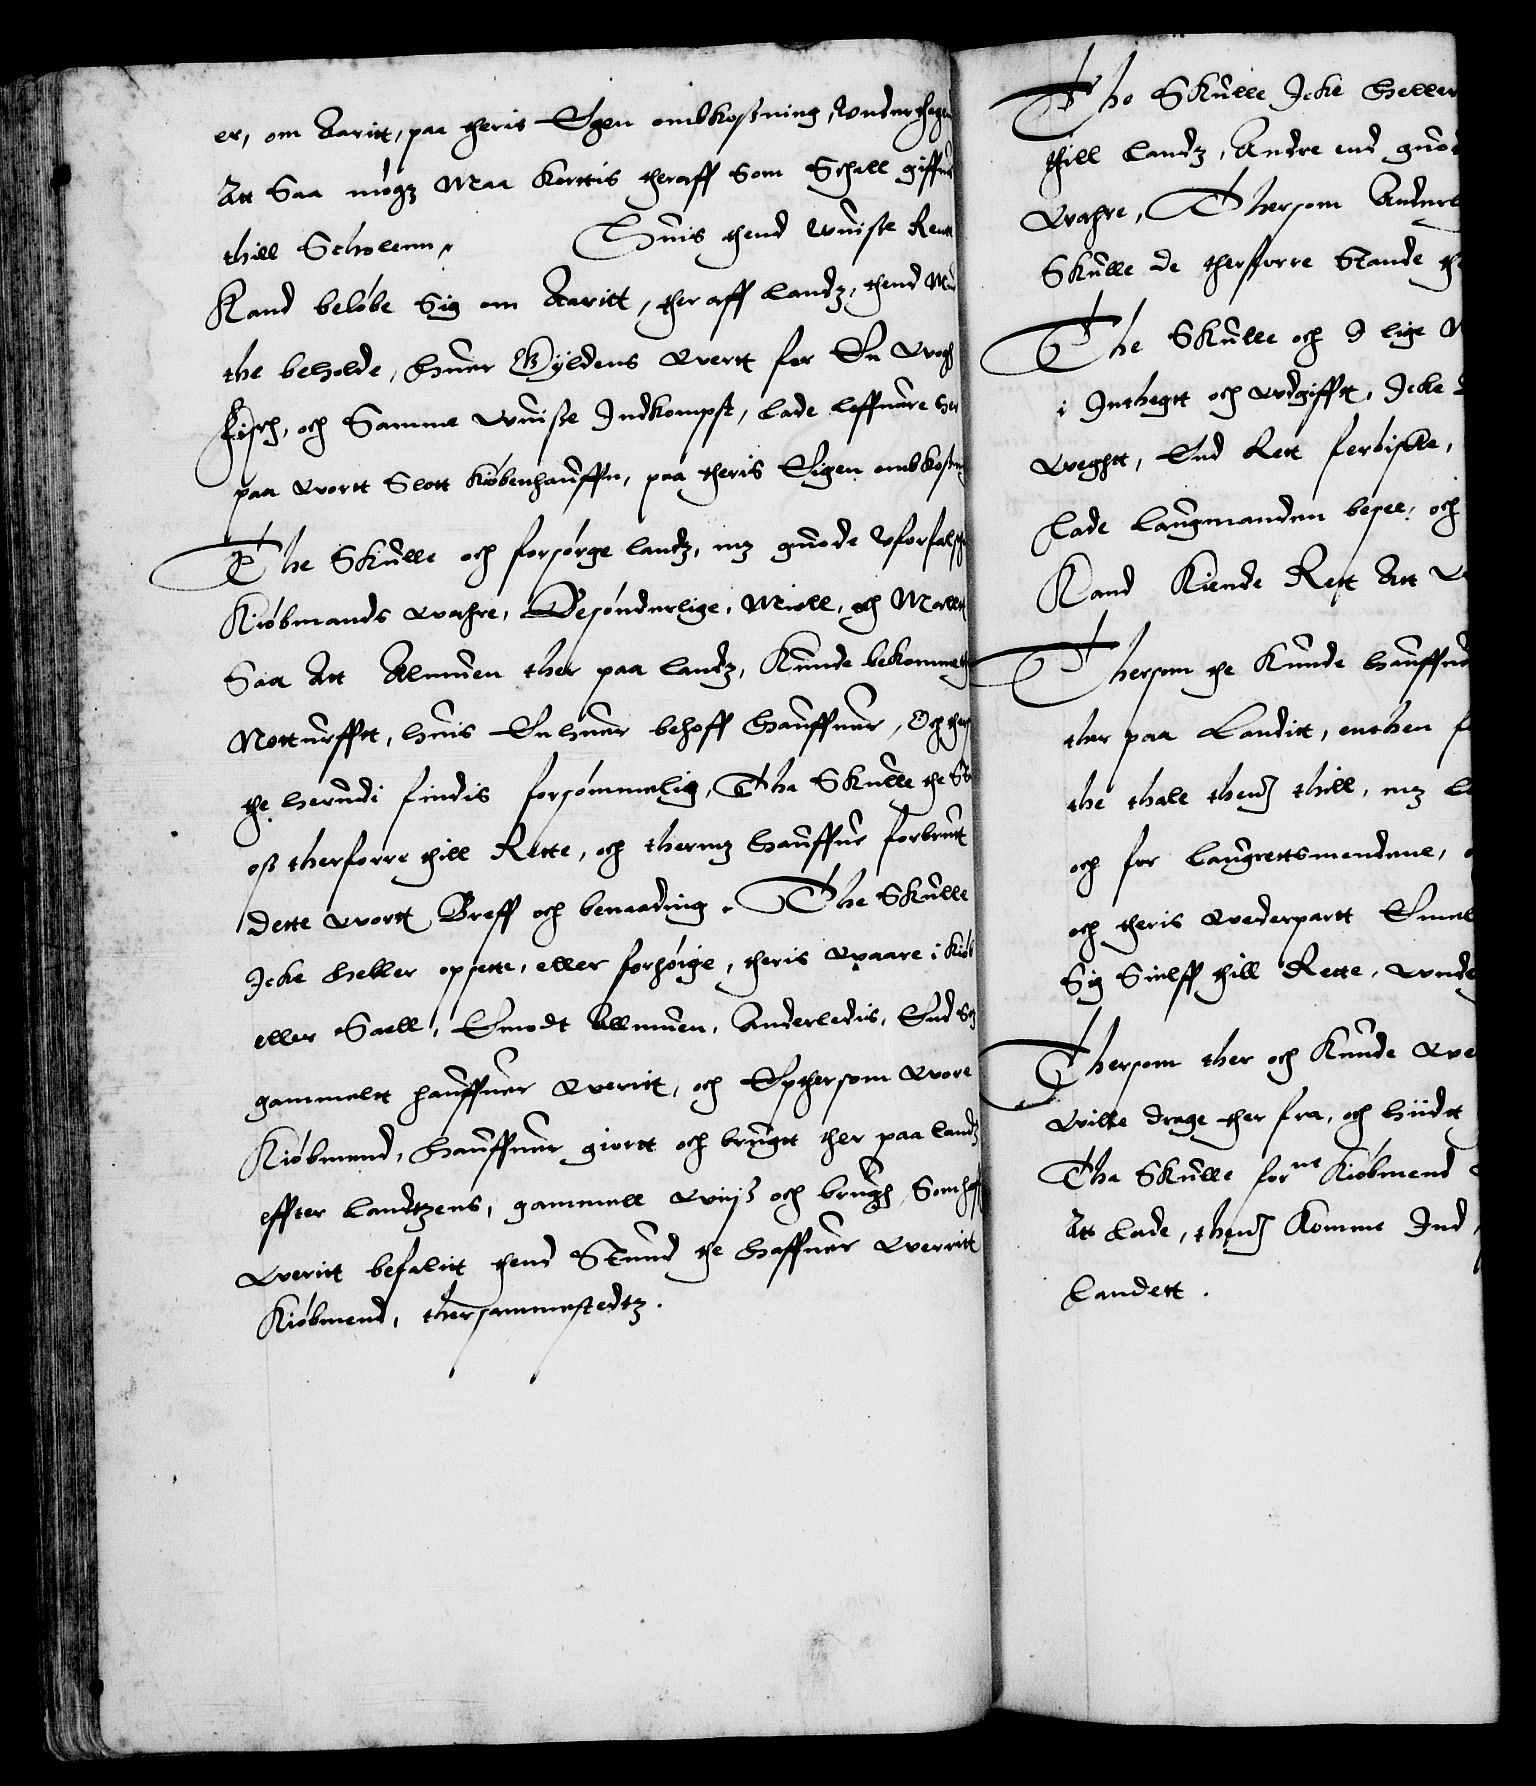 er, om Aaritt, paa theris Egen ombkostning, Underthagen
Att Saa møgz Maa kortis theraff Som Schall giffuis
thill Scholenn. Huis thend Uuisse Rentt
Kand beløbe Sig om Aaritt, ther aff landz, thend Mue
the beholde, huer Gyldens Wertt for En Wogh
Fisch, och Samme Wuisse Indkompst, lade leffuere her
paa wortt Slott Kiøbenhauffn, paa theris Eigen ombkostning
The Skulle och forsørge landz, mz guode Uforfalsche
Kiøbmands wahre, Besønderlige, Miell, och Mallt
Saa Att Almuen ther paa landz, Kunde bekomme
Notturfftt, huis En huer behoff Hauffuer, Och ther
the herudi findis forsømmelig, Tha Skulle the
oss therforre thill Rette, och thermz Hauffue forbrutt
dette wortt Breff och benaading. The Skulle
Icke heller opsette, eller forhøige, theris waare i Kiøb
eller Saell, Emodt Allmuen, Anderledis, End
gammelt hauffuer Werritt, och Epthersom Wore
Kiøbmend, Hauffuer giortt och brugtt ther paa landz
effter landtzens, gammell Wiiss och brugh, Som
Weritt befalitt thend Stund the Haffuer Werritt
Kiøbmend, thersammestedtz.
Tho Skulle Icke Heller
thill landz, Andre end guode
Wahre, Thersom Anderl
Skulle de therforre Stande
The Skulle och I lige
i Intheggt och Udgifft, Icke
Weghtt, End Rett ferbiske,
Lade Laugmanden besee, och
Kand Kiende Rett Att
Thersom the Kunde hauffue
ther paa Landitt, enthen
the thale thend thill, mz
och for laugrettsmendene,
och theris Wederpartt Emel
Sig Sielff thill Rette, Unde
Thersom ther och Kunde
Wilke drage ther fra, och hiidt
Tha Skulle forne Kiøbmend
Att lade, thend Komme Ind
Landett.